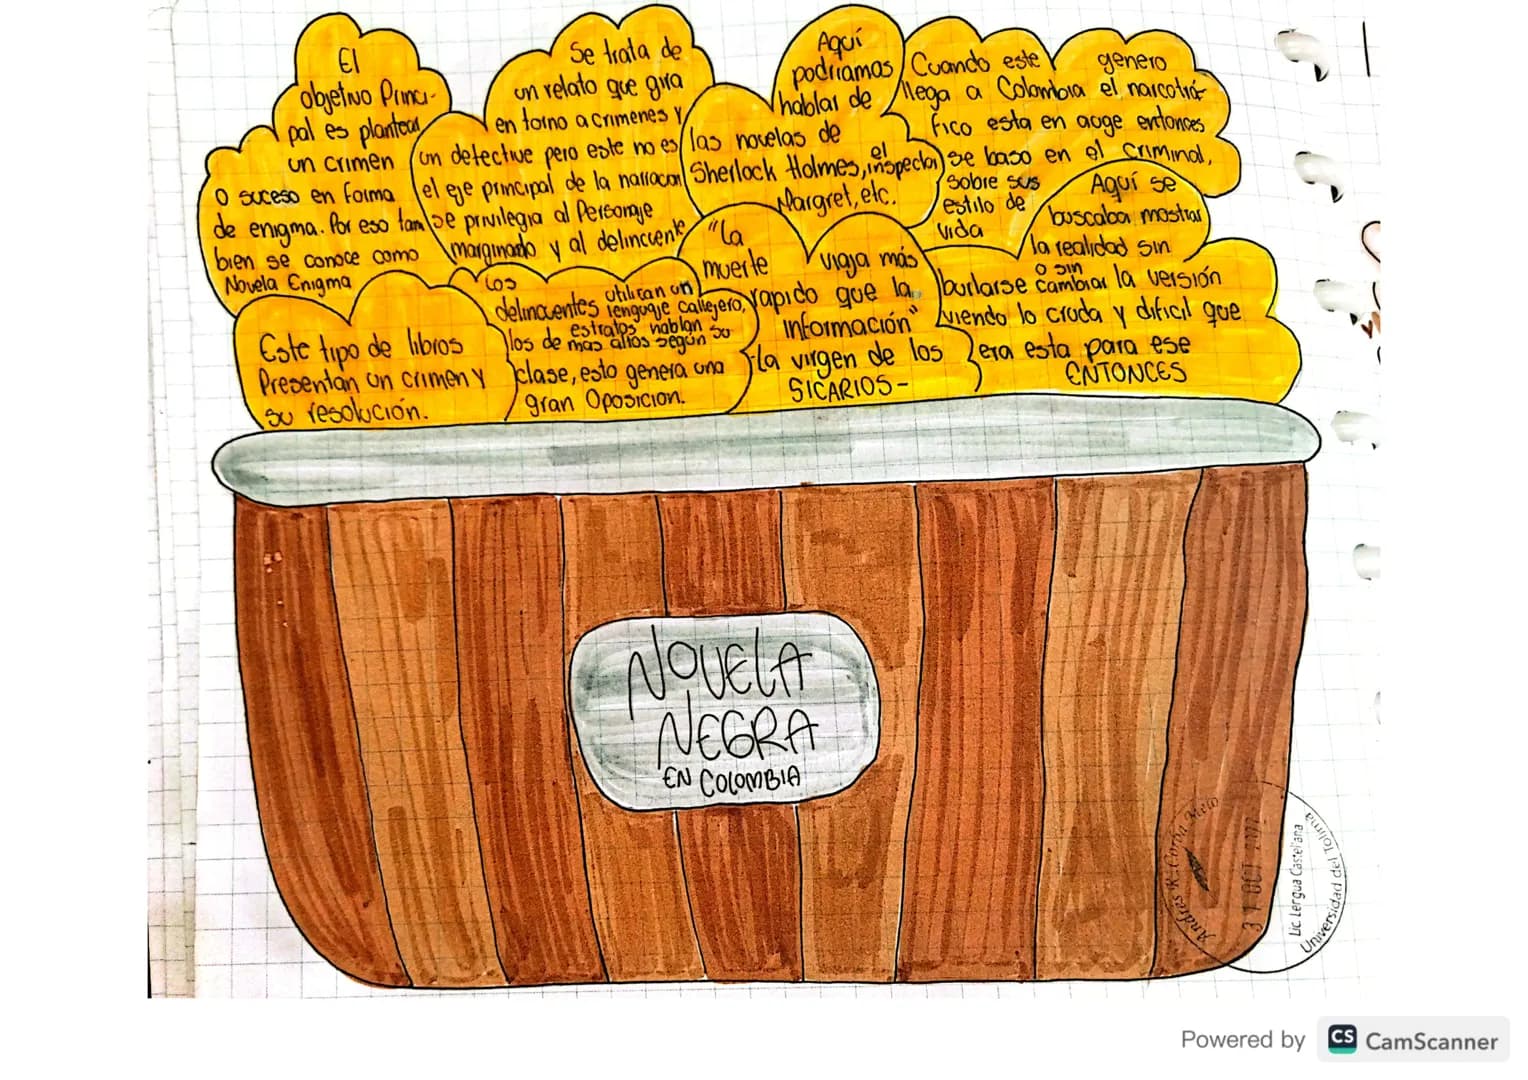 El
objetivo Princi-
pal es plantear
un crimen
o suceso en forma
de enigma. Por eso tam
bien se conoce como
Novela Enigma
Se trata de
un relato que gira
en torno a crimenes y
un detective pero este no es
el eje principal de la narracion
se privilegia al Personaje
marginado y al delincuente
Aquí
podriamos
hablar de
las novelas de
Sherlock Holmes, el inspector
Margret, etc.
Cuando este genero
llega a Colombia el narcotrá-
fico esta en auge entonces
se baso en el criminal,
sobre sus
estilo de
vida
Aquí se
buscaba mostrar
la realidad sin
burlarse o sin cambiar la versión
viendo lo cruda y dificil que
era esta para ese
ENTONCES
Este tipo de libros
Presentan un crimen y
su resolución.
Los
delincuentes utilizan un lenguaje callejero,
los de estratos mas altos hablan según su
clase, esto genera una
gran Oposicion.
"La
muerte viaja más
rapido que la
información"
-La virgen de los
SICARIOS-
NOVELA
NEGRA
EN COLOMBIA
31 OCT
Lic. Lengua Castellana
Universidad del Tolima
Powered by CS CamScanner